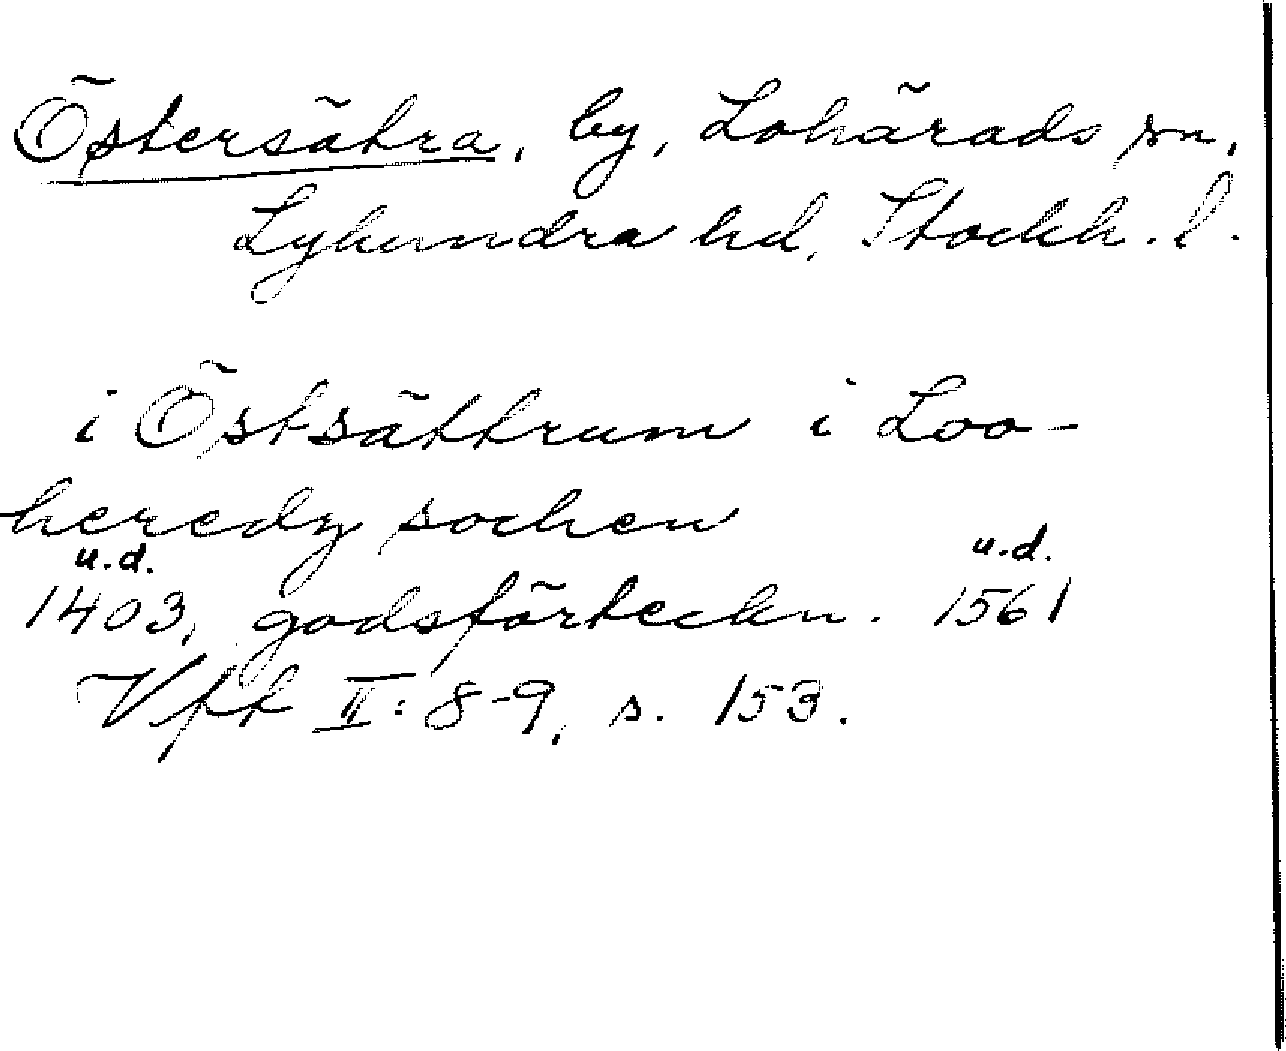 Östersätra, by, Lohärads sn,
Lyhundra hd, Stockh. l.
i Östsättrum i Loo-
heredz sochen
u.d. u.d.
1403, godsförteckn. 1561
Vfk II: 8-9, s. 153.